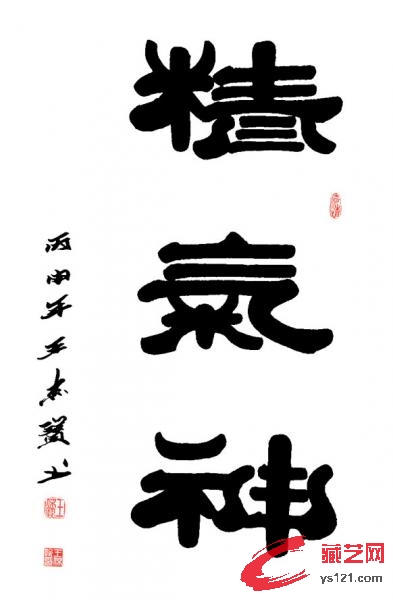 精
氣
神
丙申年王书
藏艺网
ys121.com